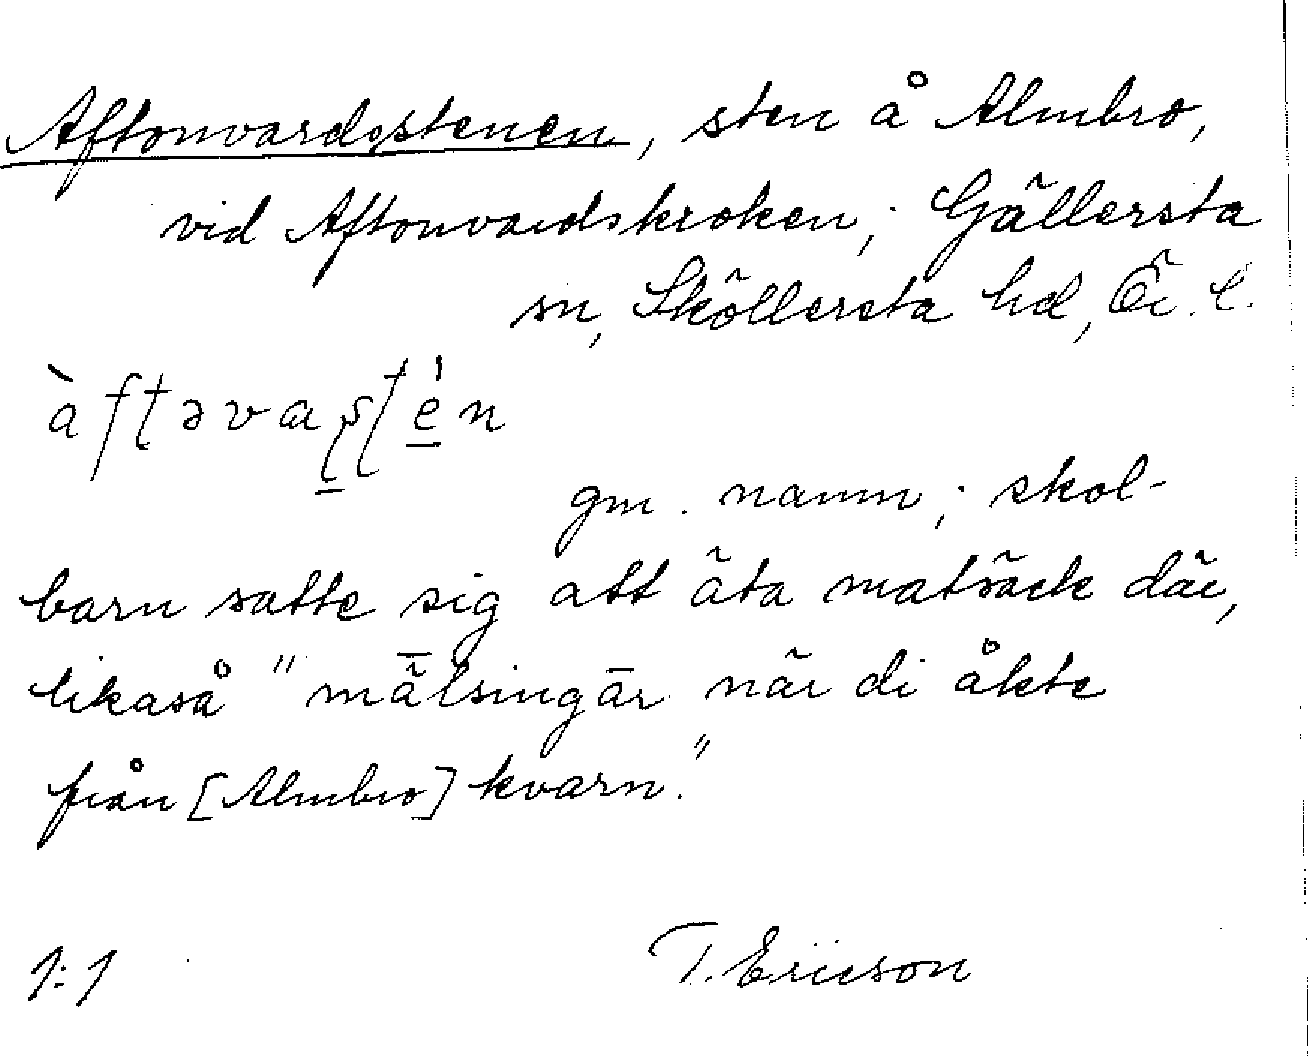 Aftonvardsstenen, sten å Almbro,
vid Aftonvardskroken; Gällersta
sn, Sköllersta hd, Ör. l.
àftəvaʂtén
gm. namn; skol-
barn satte sig att äta matsäck där,
likaså "mälsingar när di åkte
från [Almbro] kvarn."
1:1 T. Ericson